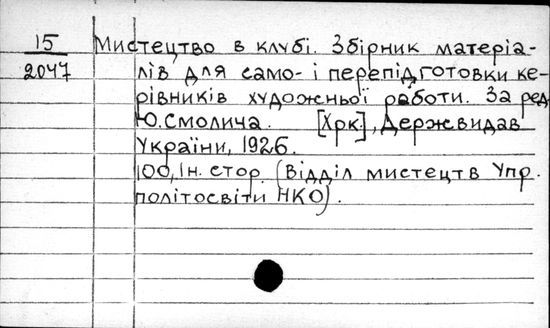 15 Мистецтво в клубі. Збірник матеріа-
2047 лів для само- і перепідготовки ке-
рівників художньої работи. За ред
Ю. Смолича. [Хрк.], Держвидав
України, 1926.
100, Ін. стор. (Відділ мистецтв Упр.
політосвіти НКО).